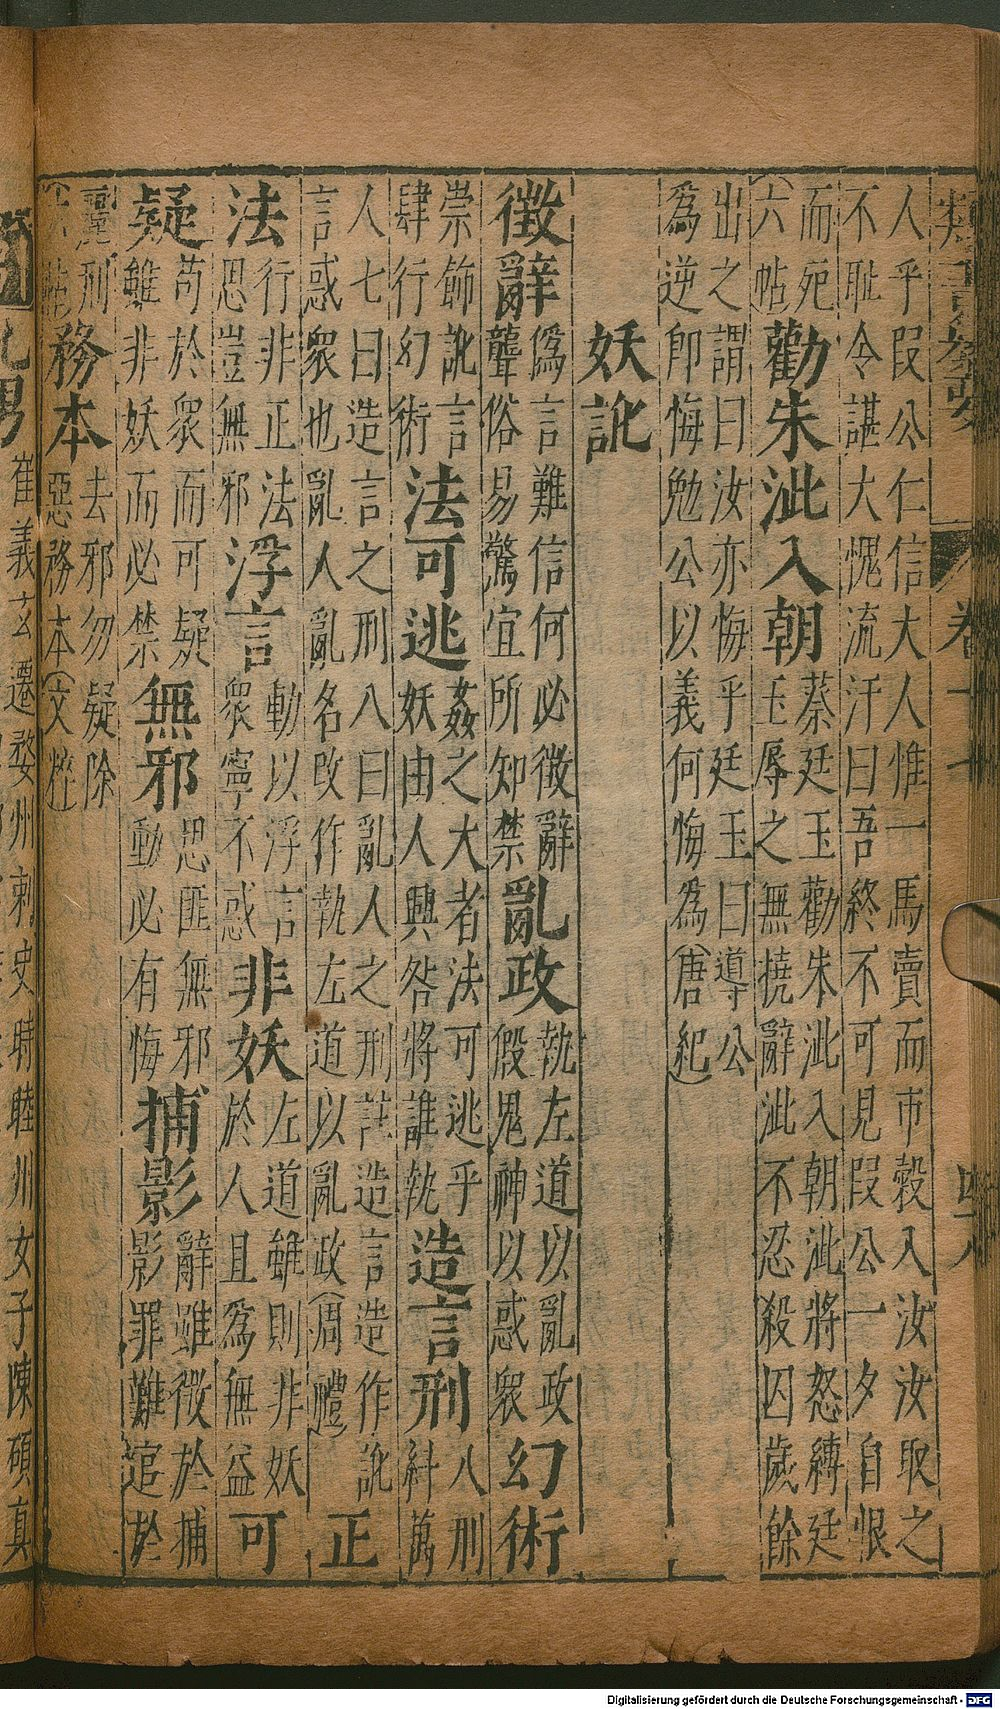 人乎叚公仁信大人惟一馬賣而市穀入汝汝取之
不耻令諶大愧流汗曰吾終不可見叚公一夕自恨
而死
六帖
勸朱泚入朝
蔡廷玉勸朱泚入朝泚將怒縛廷
玉辱之無撓辭泚不忍殺囚歲餘
出之謂曰汝亦悔乎廷玉曰導公
為逆即悔勉公以義何悔為(唐紀)
妖訛
徵辭
偽言難信何必徵辭
聾俗易驚宜所知禁
亂政
執左道以亂政
假鬼神以惑衆
幻術
崇飾訛言
肆行幻術
法可逃
姦之大者法可逃乎
妖由人興咎將誰執
造言刑
八刑
糾萬
人七曰造言之刑八曰亂人之刑註造言造作訛
言惑衆也亂人亂名改作執左道以亂政(周禮)
正
法
行非正法
思豈無邪
浮言
動以浮言
衆寧不惑
非妖
左道雖則非妖
於人且為無益
可
疑
苟於衆而可疑
雖非妖而必禁
無邪
思匪無邪
動必有悔
捕影
辭雖徵於捕
影罪難逭於
麗刑
六帖
務本
去邪勿疑除
惡務本(文粹
崔義玄遷婺州刺史時睦州女子陳碩真
卷十七
Digitalisierung gefördert durch die Deutsche Forschungsgemeinschaft - DFG